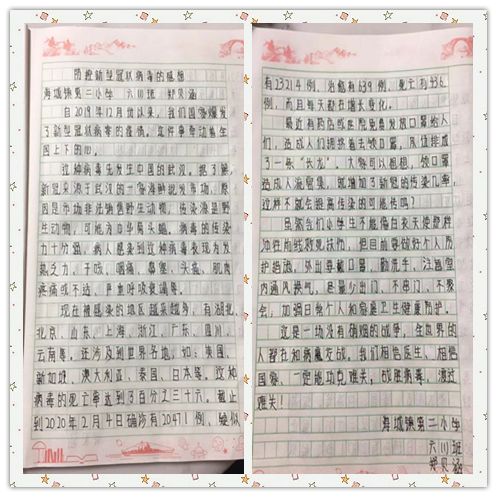 防控新型冠状病毒的感想
海城镇第二小学 六(1)班 郑贝涵
自2019年12月份以来,我们国家爆发
了新型冠状病毒的疫情。这件事牵动着全
国上下的心。
这种病毒先发生中国的武汉。据了解,
新冠来源于武汉的一家海鲜批发市场,原
因是市场非法销售野生动物,传染源是野
生动物,可能为中华菊头蝠。病毒的传染
力十分强,病人感染到这种病毒表现为发
热乏力、干咳、咽痛、鼻塞、头痛、肌肉
疼痛或不适、严重呼吸衰竭等。
现在被感染的地区越来越多,有湖北、
北京、山东、上海、浙江、广东、四川、
云南等,还涉及到世界各地,如:美国、
新加坡、澳大利亚、泰国、日本等。这种
病毒的死亡率达到3百分之三十六。截止
到2020年2月4日确诊有20471例,疑似
有23214例,治愈有639例,死亡有436
例,而且每天都在增长变化。
最近有药店或医院免费发放口罩给人
们,造成人们拥挤着去领口罩,队伍排成
了一条“长龙”,大家可以想想,领口罩
造成人流量集,就增加了新冠的传染几率,
这样不就是提高传染的可能性吗?
虽然我们小学生不能像白衣天使那样
冲在前线救死扶伤,但目前要做好个人防
护措施,外出要戴口罩,勤洗手,注意室
内通风换气,尽量少出门、不串门、不聚
会,加强日常个人和家庭卫生健康防护。
这是一场没有硝烟的战争,全世界的
人都在和病魔交战,我们相信医生、相信
国家,一定能攻克难关,战胜病毒,渡过
难关!
海城镇第二小学
六(1)班
郑贝涵